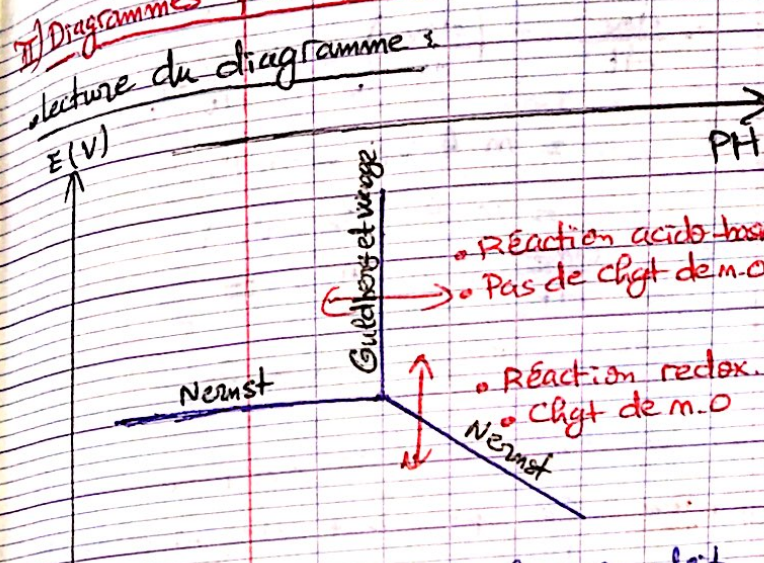 II) Diagrammes
. lecture du diagramme :
E(V)
PH
Guldberg et waage
. Réaction acido-bas
. Pas de chgt de n.O
Nernst
. Réaction redox.
. Chgt de n.O
Nernst